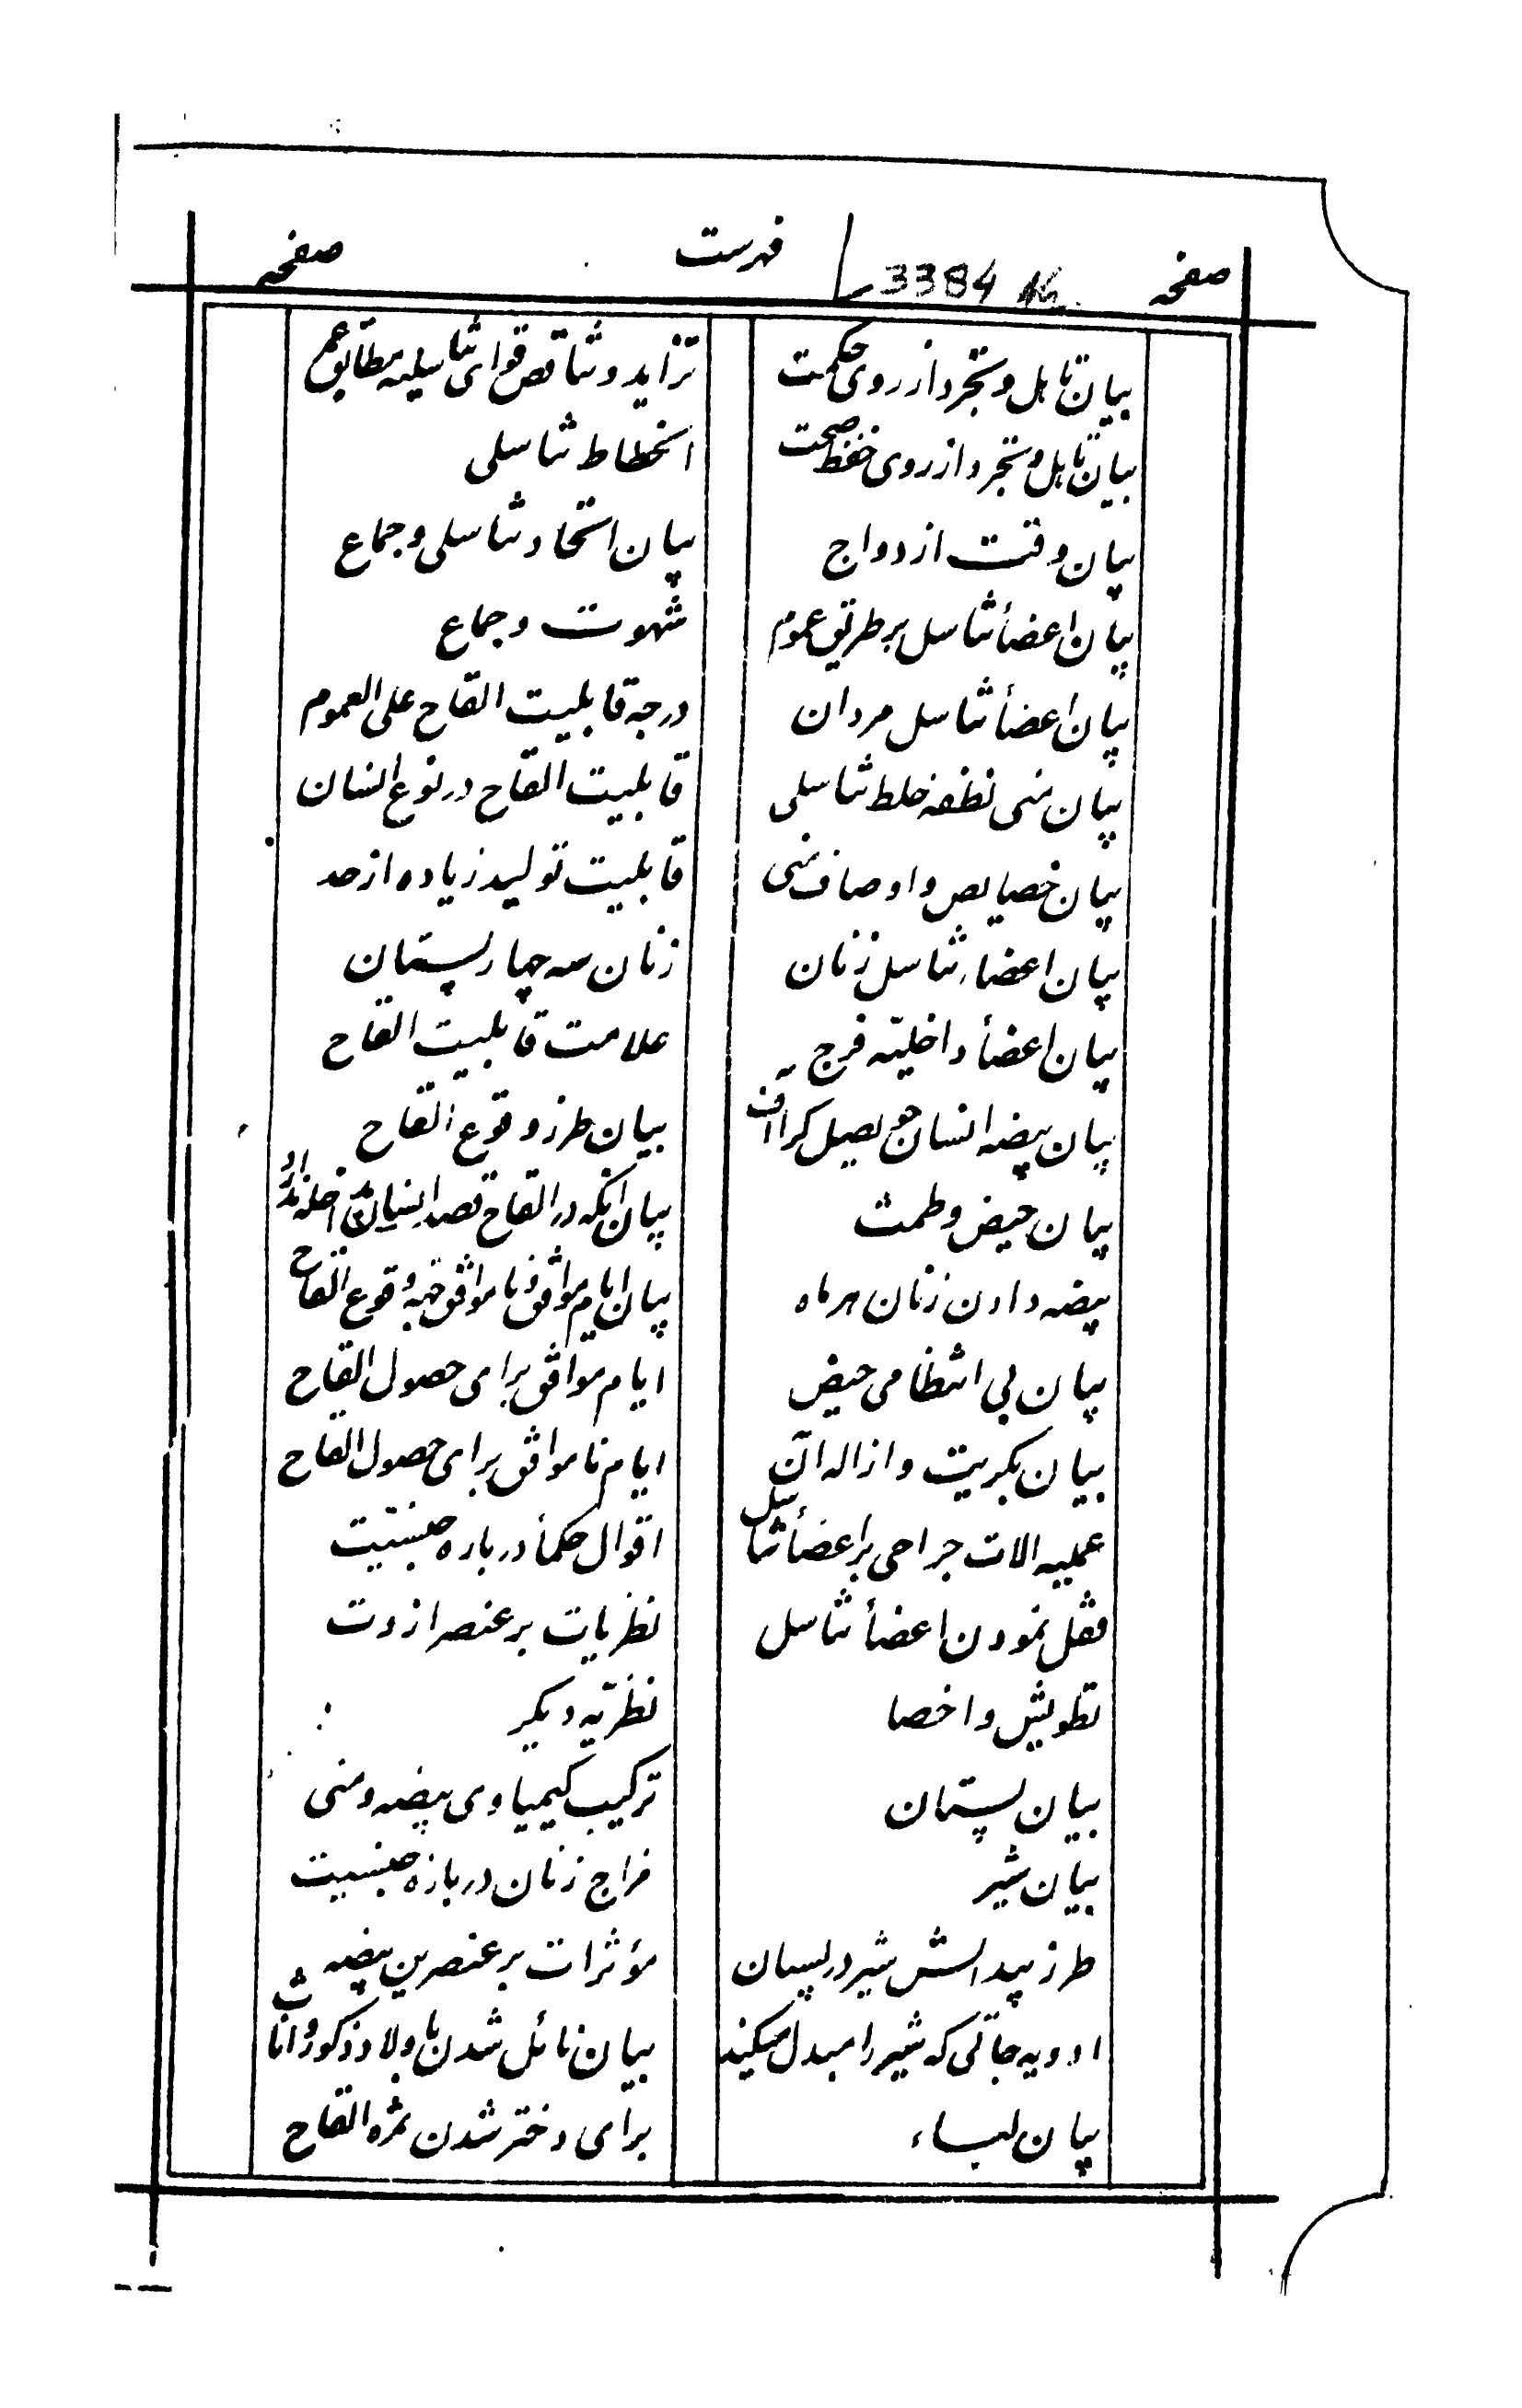 صفحه
3384
فهرست
صفحه
بیان تاهل و تجرد از روی حکمت
بیان تاهل و تجرد از روی حفظ صحت
بیان وقت ازدواج
بیان اعضأ تناسل بر طریق عموم
بیان اعضأ تناسل مردان
بیان منی نطفه خلط تناسلی
بیان خصایص و اوصاف منی
بیان اعضاء تناسل زنان
بیان اعضأ داخلیّه فرج
بیان بیضه انسان حویصیل کرااف
بیان حیض و طمث
بیضه دادن زنان هر ماه
بیان بی انتظامی حیض
بیان بکریت و ازاله آن
عملیه الات جراحی بر اعضأ تناسل
قفل نمودن اعضأ تناسل
تطویش و اخصا
بیان پستان
بیان شیر
طرز پیدایش شیر در پستان
ادویه جاتی که شیر را مبدل میکند
بیان لباء
تزاید و تناقص قوای تناسلیه مطابق عمر
انحطاط تناسلی
بیان اتحاد تناسلی و جماع
شهوت و جماع
درجه قابلیت القاح علی العموم
قابلیت القاح در نوع انسان
قابلیت تولید زیاده از حد
زنان سه چهار پستان
علامت قابلیت القاح
بیان طرز وقوع القاح
بیان انکه در القاح قصد انسان
بیان ایام موافق و نا موافق جهة وقوع القاح
ایام موافق برای حصول القاح
ایام نا موافق برای حصول القاح
اقوال حکمأ درباره جنسیّت
نظریات بر عنصر ازوت
نظریّه دیگر
ترکیب کیمیاوی بیضه و منی
مزاج زنان درباره جنسیت
مؤثرات بر عنصرین بیضه
بیان نائل شدن با ولاد ذکور و اناث
برای دختر شدن ثمره القاح